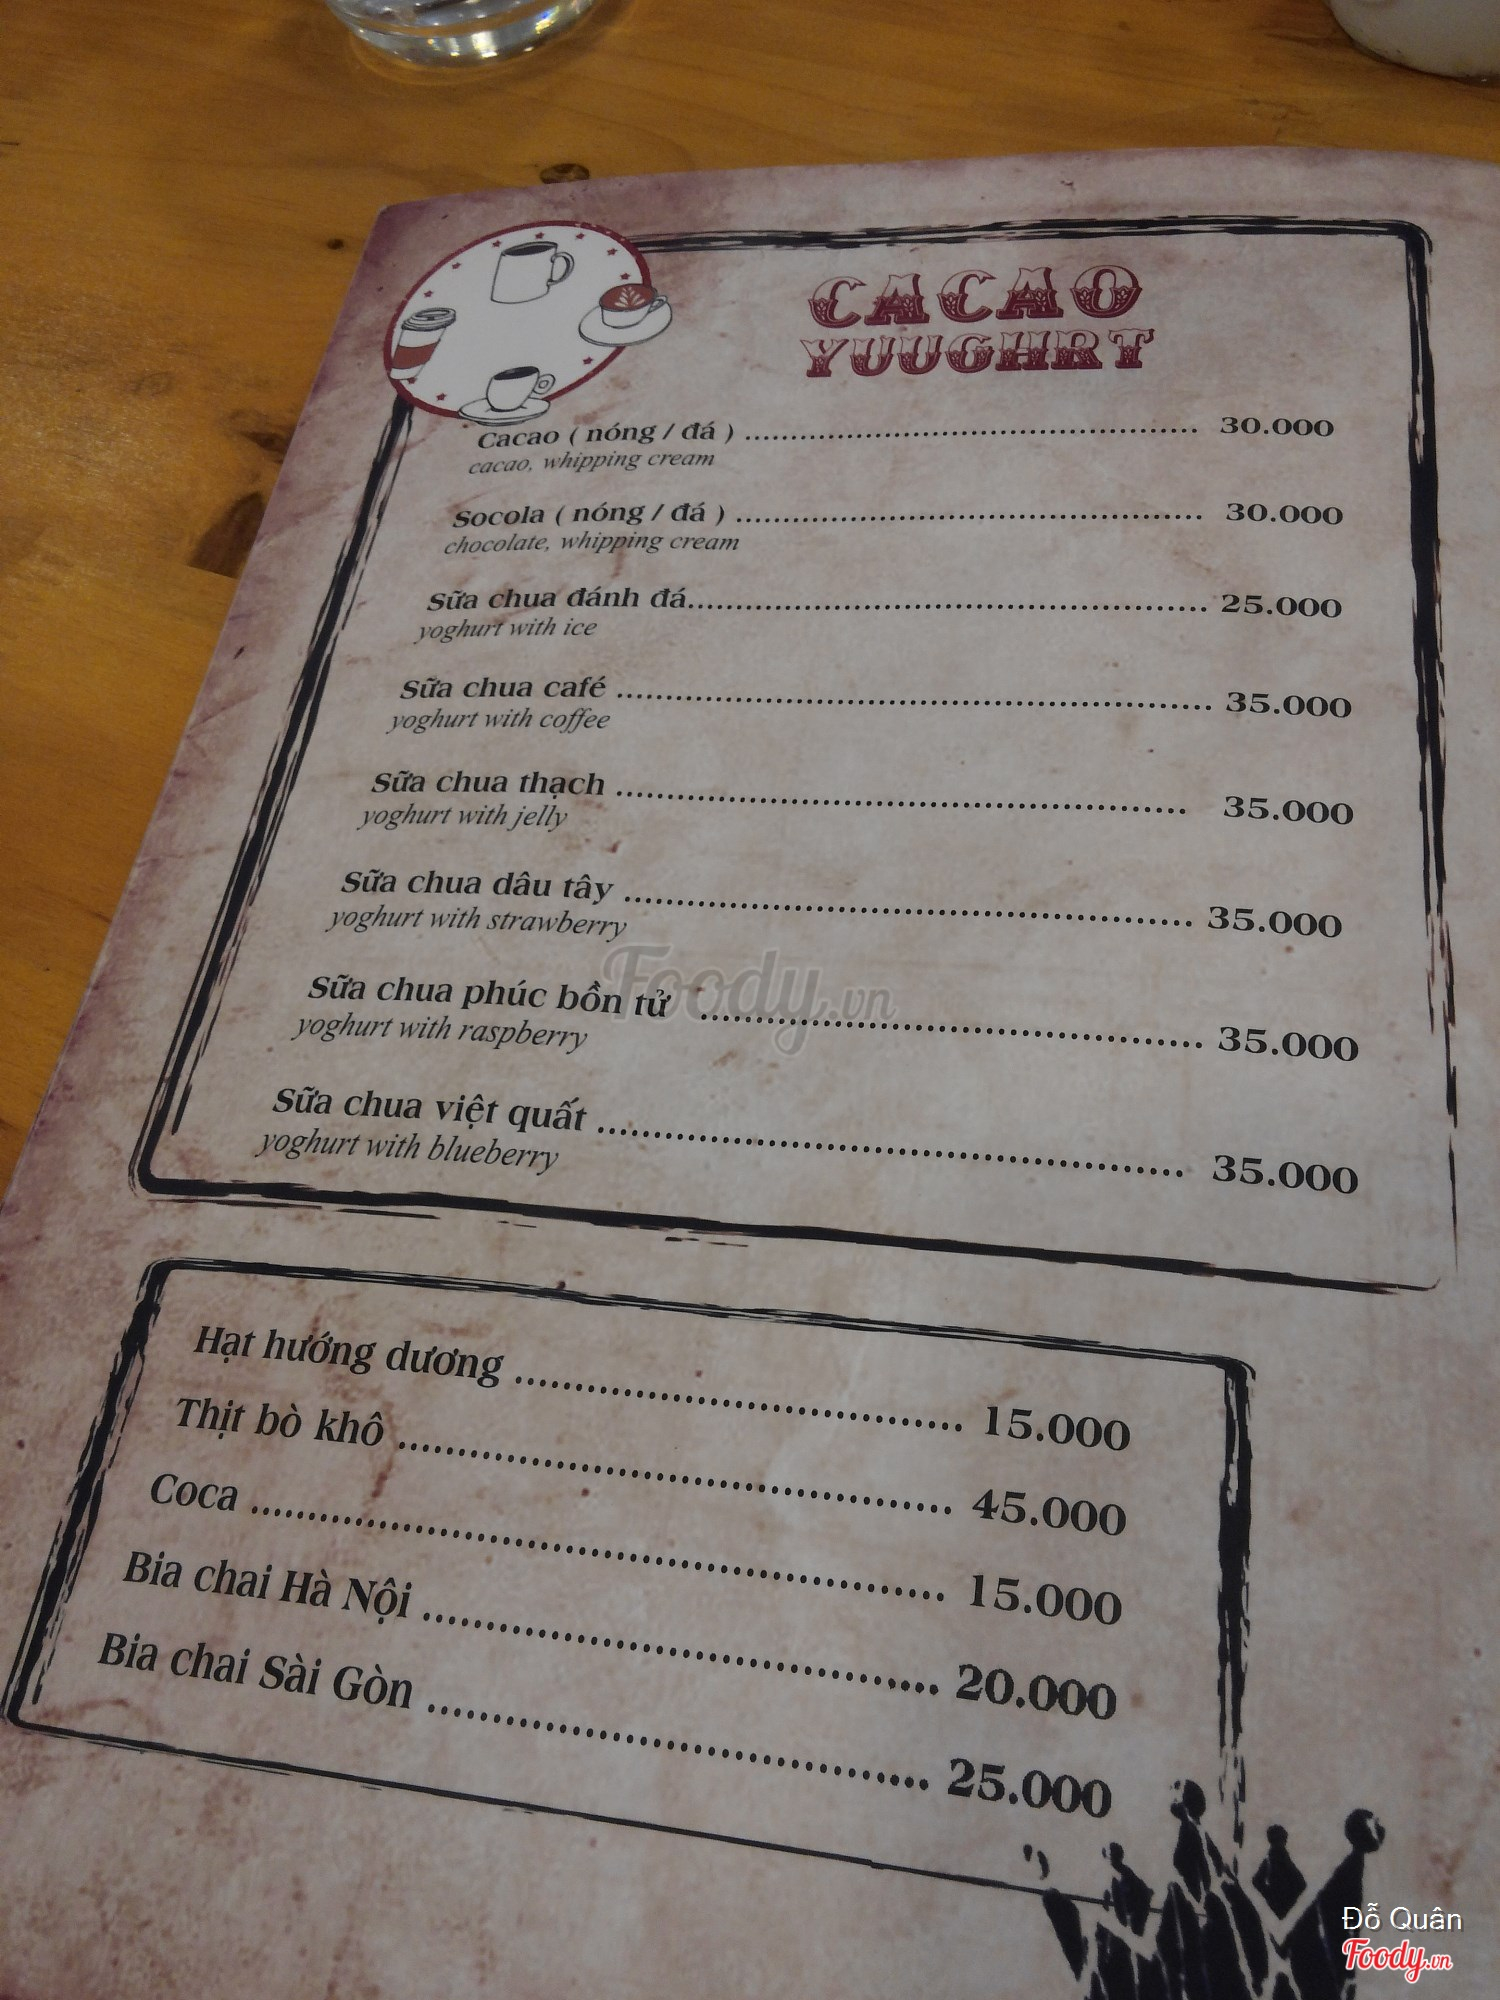 CACAO
YUUGHRT
Cacao ( nóng / đá ) ............................................. 30.000
cacao, whipping cream
Socola ( nóng / đá ) ............................................. 30.000
chocolate, whipping cream
Sữa chua đánh đá.................................................... 25.000
yoghurt with ice
Sữa chua café ............................................................ 35.000
yoghurt with coffee
Sữa chua thạch ......................................................... 35.000
yoghurt with jelly
Sữa chua dâu tây ...................................................... 35.000
yoghurt with strawberry
Sữa chua phúc bồn tử ............................................. 35.000
yoghurt with raspberry
Sữa chua việt quất .................................................... 35.000
yoghurt with blueberry
Foody.vn
Hạt hướng dương ...................................... 15.000
Thịt bò khô ............................................... 45.000
Coca ........................................................... 15.000
Bia chai Hà Nội .......................................... 20.000
Bia chai Sài Gòn ......................................... 25.000
Đỗ Quân
Foody.vn